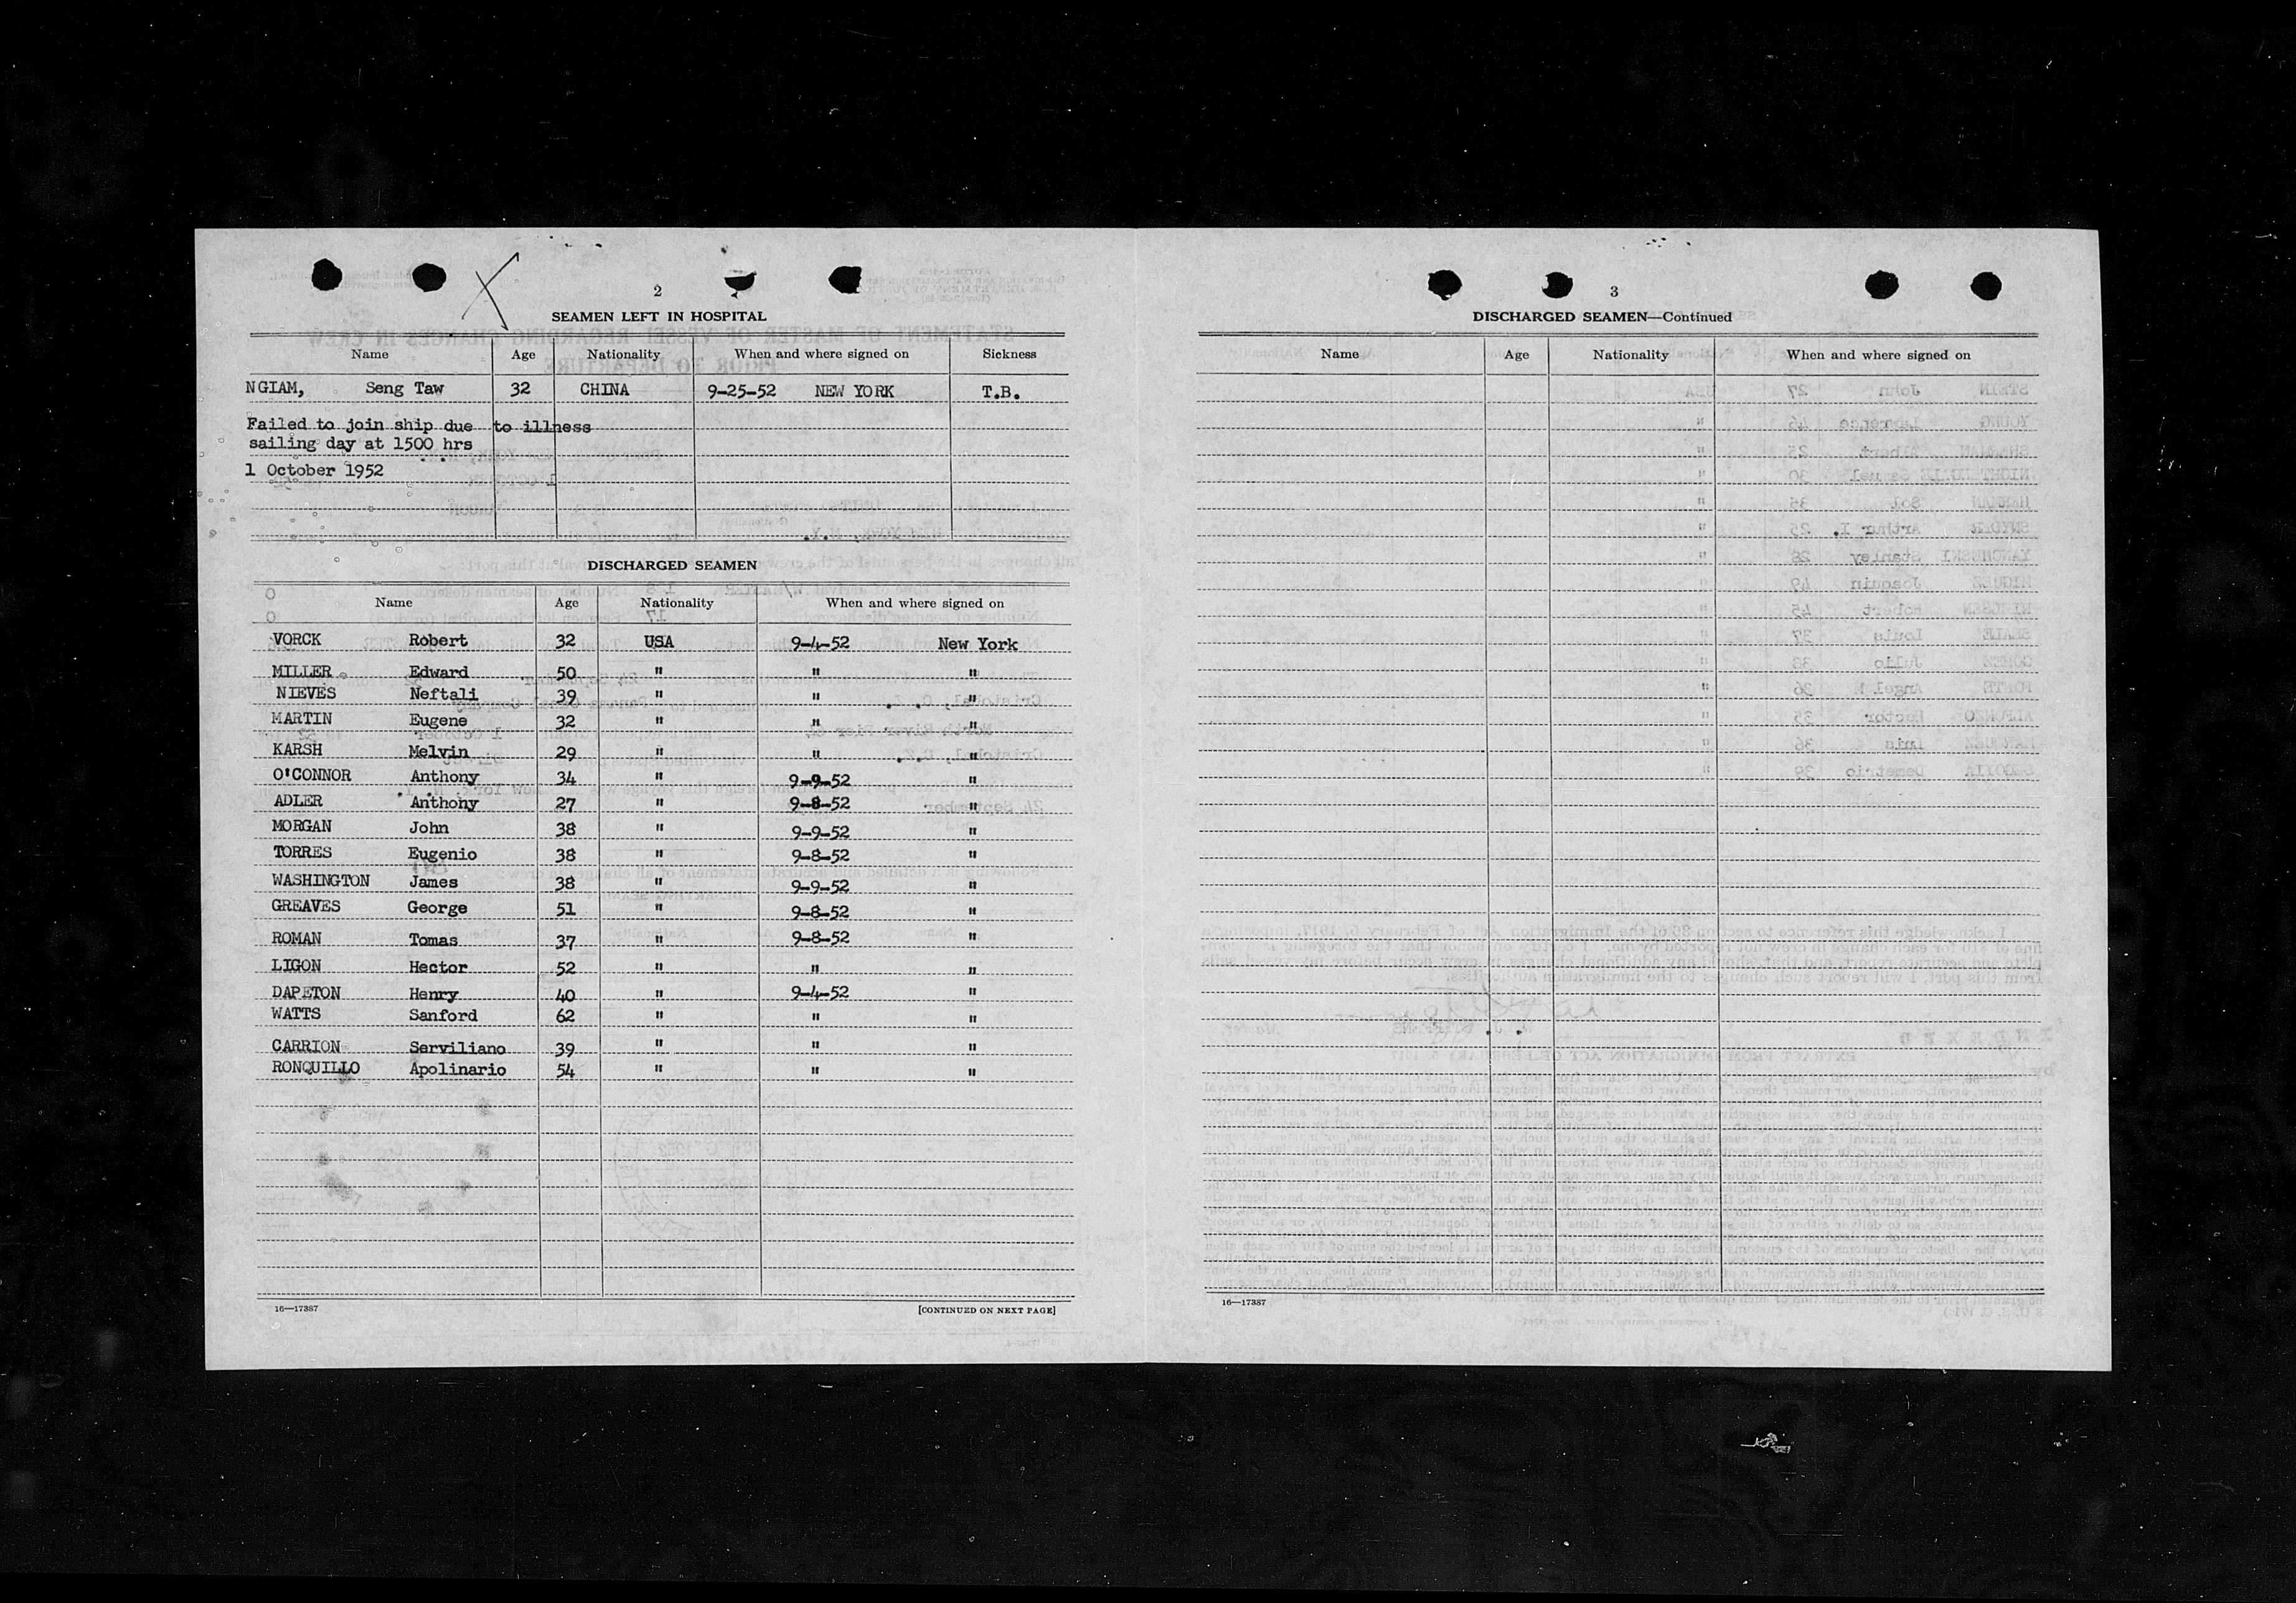 2
SEAMEN LEFT IN HOSPITAL
Name Age Nationality When and where signed on Sickness
NGIAM, Seng Taw 32 CHINA 9-25-52 NEW YORK T.B.
Failed to join ship due to illness
sailing day at 1500 hrs
1 October 1952
DISCHARGED SEAMEN
Name Age Nationality When and where signed on
VORCK Robert 32 USA 9-4-52 New York
MILLER Edward 50 " " "
NIEVES Neftali 39 " " "
MARTIN Eugene 32 " " "
KARSH Melvin 29 " " "
O'CONNOR Anthony 34 " 9-9-52 "
ADLER Anthony 27 " 9-8-52 "
MORGAN John 38 " 9-9-52 "
TORRES Eugenio 38 " 9-8-52 "
WASHINGTON James 38 " 9-9-52 "
GREAVES George 51 " 9-8-52 "
ROMAN Tomas 37 " 9-8-52 "
LIGON Hector 52 " " "
DAPETON Henry 40 " 9-4-52 "
WATTS Sanford 62 " " "
CARRION Serviliano 39 " " "
RONQUILLO Apolinario 54 " " "
16—17387 [CONTINUED ON NEXT PAGE]
3
DISCHARGED SEAMEN—Continued
Name Age Nationality When and where signed on
16—17387